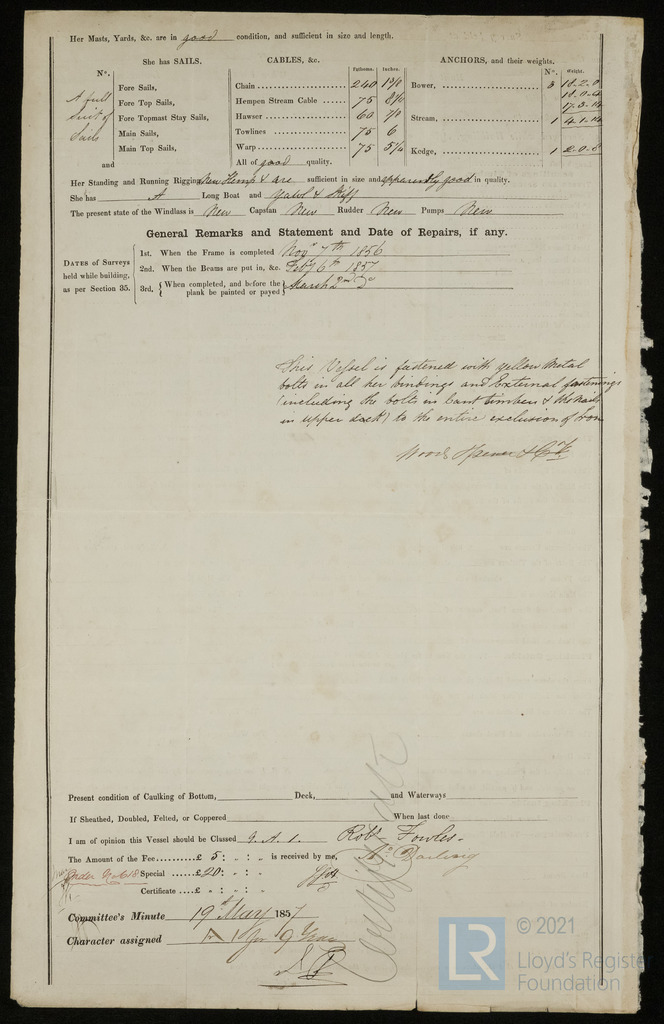 Her Masts, Yards, &c. are in good condition, and sufficient in size and length.
She has SAILS.
CABLES, &c.
Fathoms. Inches.
ANCHORS, and their weights.
Nº. Weight.
Nº.
A full suit of Sails
Fore Sails,
Fore Top Sails,
Fore Topmast Stay Sails,
Main Sails,
Main Top Sails,
and
Chain 240
Hempen Stream Cable 75
Hawser 60
Towlines 75 6
Warp 75
All of good quality.
Bower, 3 18.2.0
Stream, 1 4.1.14
Kedge, 1 2.0.8
Her Standing and Running Rigging New Hemp & are sufficient in size and apparently good in quality.
She has A Long Boat and Yawl & Skiff
The present state of the Windlass is New Capstan New Rudder New Pumps New
General Remarks and Statement and Date of Repairs, if any.
DATES of Surveys held while building, as per Section 35.
1st. When the Frame is completed Novr 7th 1856
2nd. When the Beams are put in, &c. Feby 6th 1857
3rd. { When completed, and before the plank be painted or payed } March 2nd Do
This Vessel is fastened with yellow Metal
bolts in all her bindings and External fastenings
(including the bolts in Cant timbers & the
in upper deck) to the entire exclusion of Iron
Present condition of Caulking of Bottom, Deck, and Waterways
If Sheathed, Doubled, Felted, or Coppered When last done
I am of opinion this Vessel should be Classed
Robt Fowles
The Amount of the Fee £ 5 : „ : „ is received by me,
Under No 618 Special £20: „ : „
Certificate £ „ : „ : „
Committee's Minute 19th May 1857
Character assigned A 1 for 9 Years
© 2021
LR
Lloyd's Register
Foundation